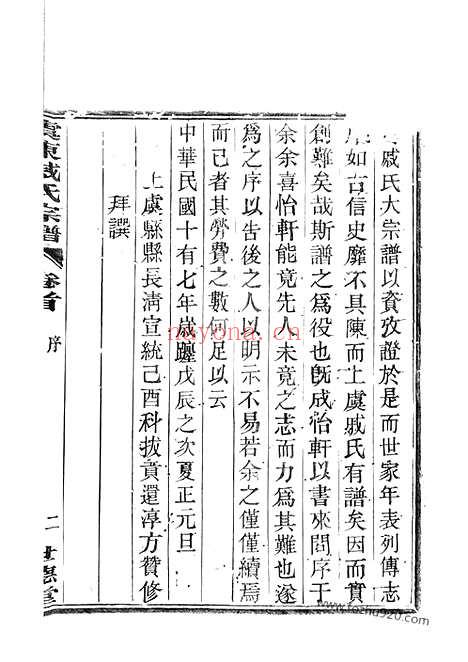 戚氏大宗譜以資攷證於是而世家年表列傳志
如古信史靡不具陳而上虞戚氏有譜矣因而實
創難矣哉斯譜之爲役也旣成怡軒以書來問序于
余余喜怡軒能竟先人未竟之志而力爲其難也遂
爲之序以告後之人以明示不易若余之僅僅續焉
而已者其勞費之數何足以云
中華民國十有七年歲躔戊辰之次夏正元旦
上虞縣縣長清宣統己酉科拔貢還淳方贊修
拜譔
虞東戚氏宗譜 卷首 序 二 世恩堂
nayona.cn
www.fozhu920.com